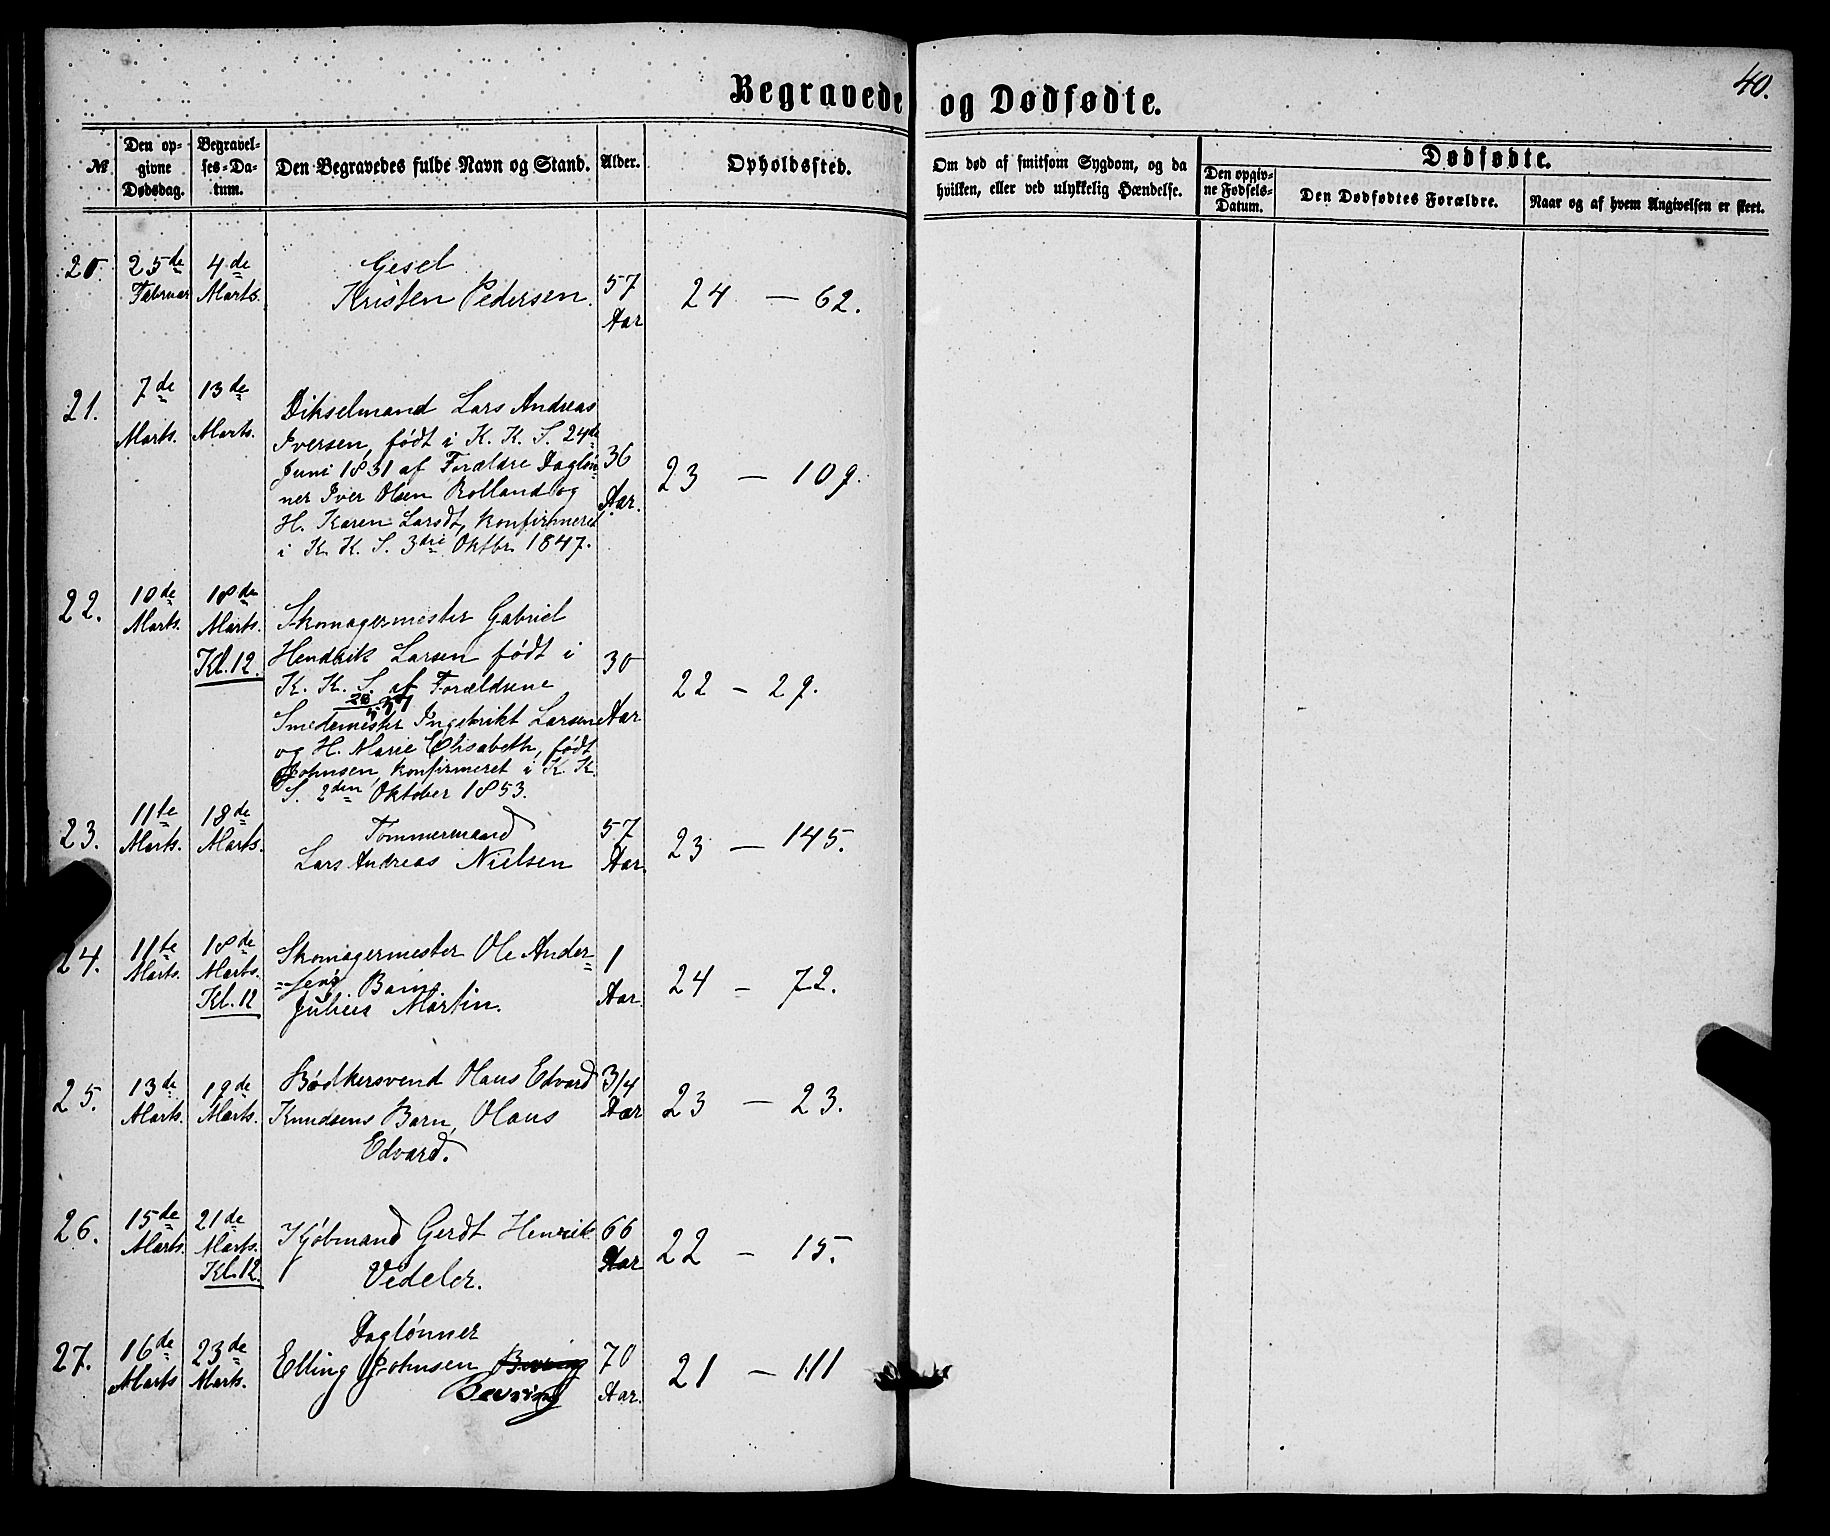 40.
Begravede og Dødfødte.
№
Den opgivne Dødsdag.
Begravelses-Datum.
Den Begravedes fulde Navn og Stand.
Alder.
Opholdssted.
Om død af smitsom Sygdom, og da hvilken, eller ved ulykkelig Hændelse.
Dødfødte.
Den opgivne Fødsels-Datum.
Den Dødfødtes Forældre.
Naar og af hvem Angivelsen er skeet.
20. 25de Februar 4de Marts.
Gesel
Kristen Pedersen.
57 Aar
24 — 62.
21. 7de Marts. 13de Marts.
Lars Andreas
Iversen, født i K. K. S. 24de
Juni 1831 af Forældre Dagløn-
ner Iver Olsen Rolland og
H. Karen Larsdt, konfirmeret
i K. K. S. 3die Oktbr. 1847.
36 Aar.
23 — 109.
22. 10de Marts. 18de Marts. Kl. 12.
Skomagermester Gabriel
Hendrik Larsen født i
K. K. S. af Forældrene
Smedemester Ingebrikt Larsen
og H. Marie Elisabeth, født
Johnsen, konfirmeret i K. K.
S. 2den Oktober 1853.
30 Aar
22 — 29.
23. 11te Marts. 18de Marts.
Tømmermand
Lars Andreas Nielsen
57 Aar.
23 — 145.
24. 11te Marts. 18de Marts. Kl. 12
Skomagermester Ole Ander-
-sens Barn,
Julius Martin.
1 Aar.
24 — 72.
25. 13de Marts. 19de Marts.
Bødkersvend Olaus Edvard
Knudsens Barn, Olaus
Edvard.
3/4 Aar
23 — 23.
26. 15de Marts. 21de Marts. Kl. 12.
Kjøbmand Gerdt Henrik
Vedeler.
66 Aar
22 — 15.
27. 16de Marts 23de Marts.
Daglønner
Elling Johnsen
70 Aar.
21 — 111